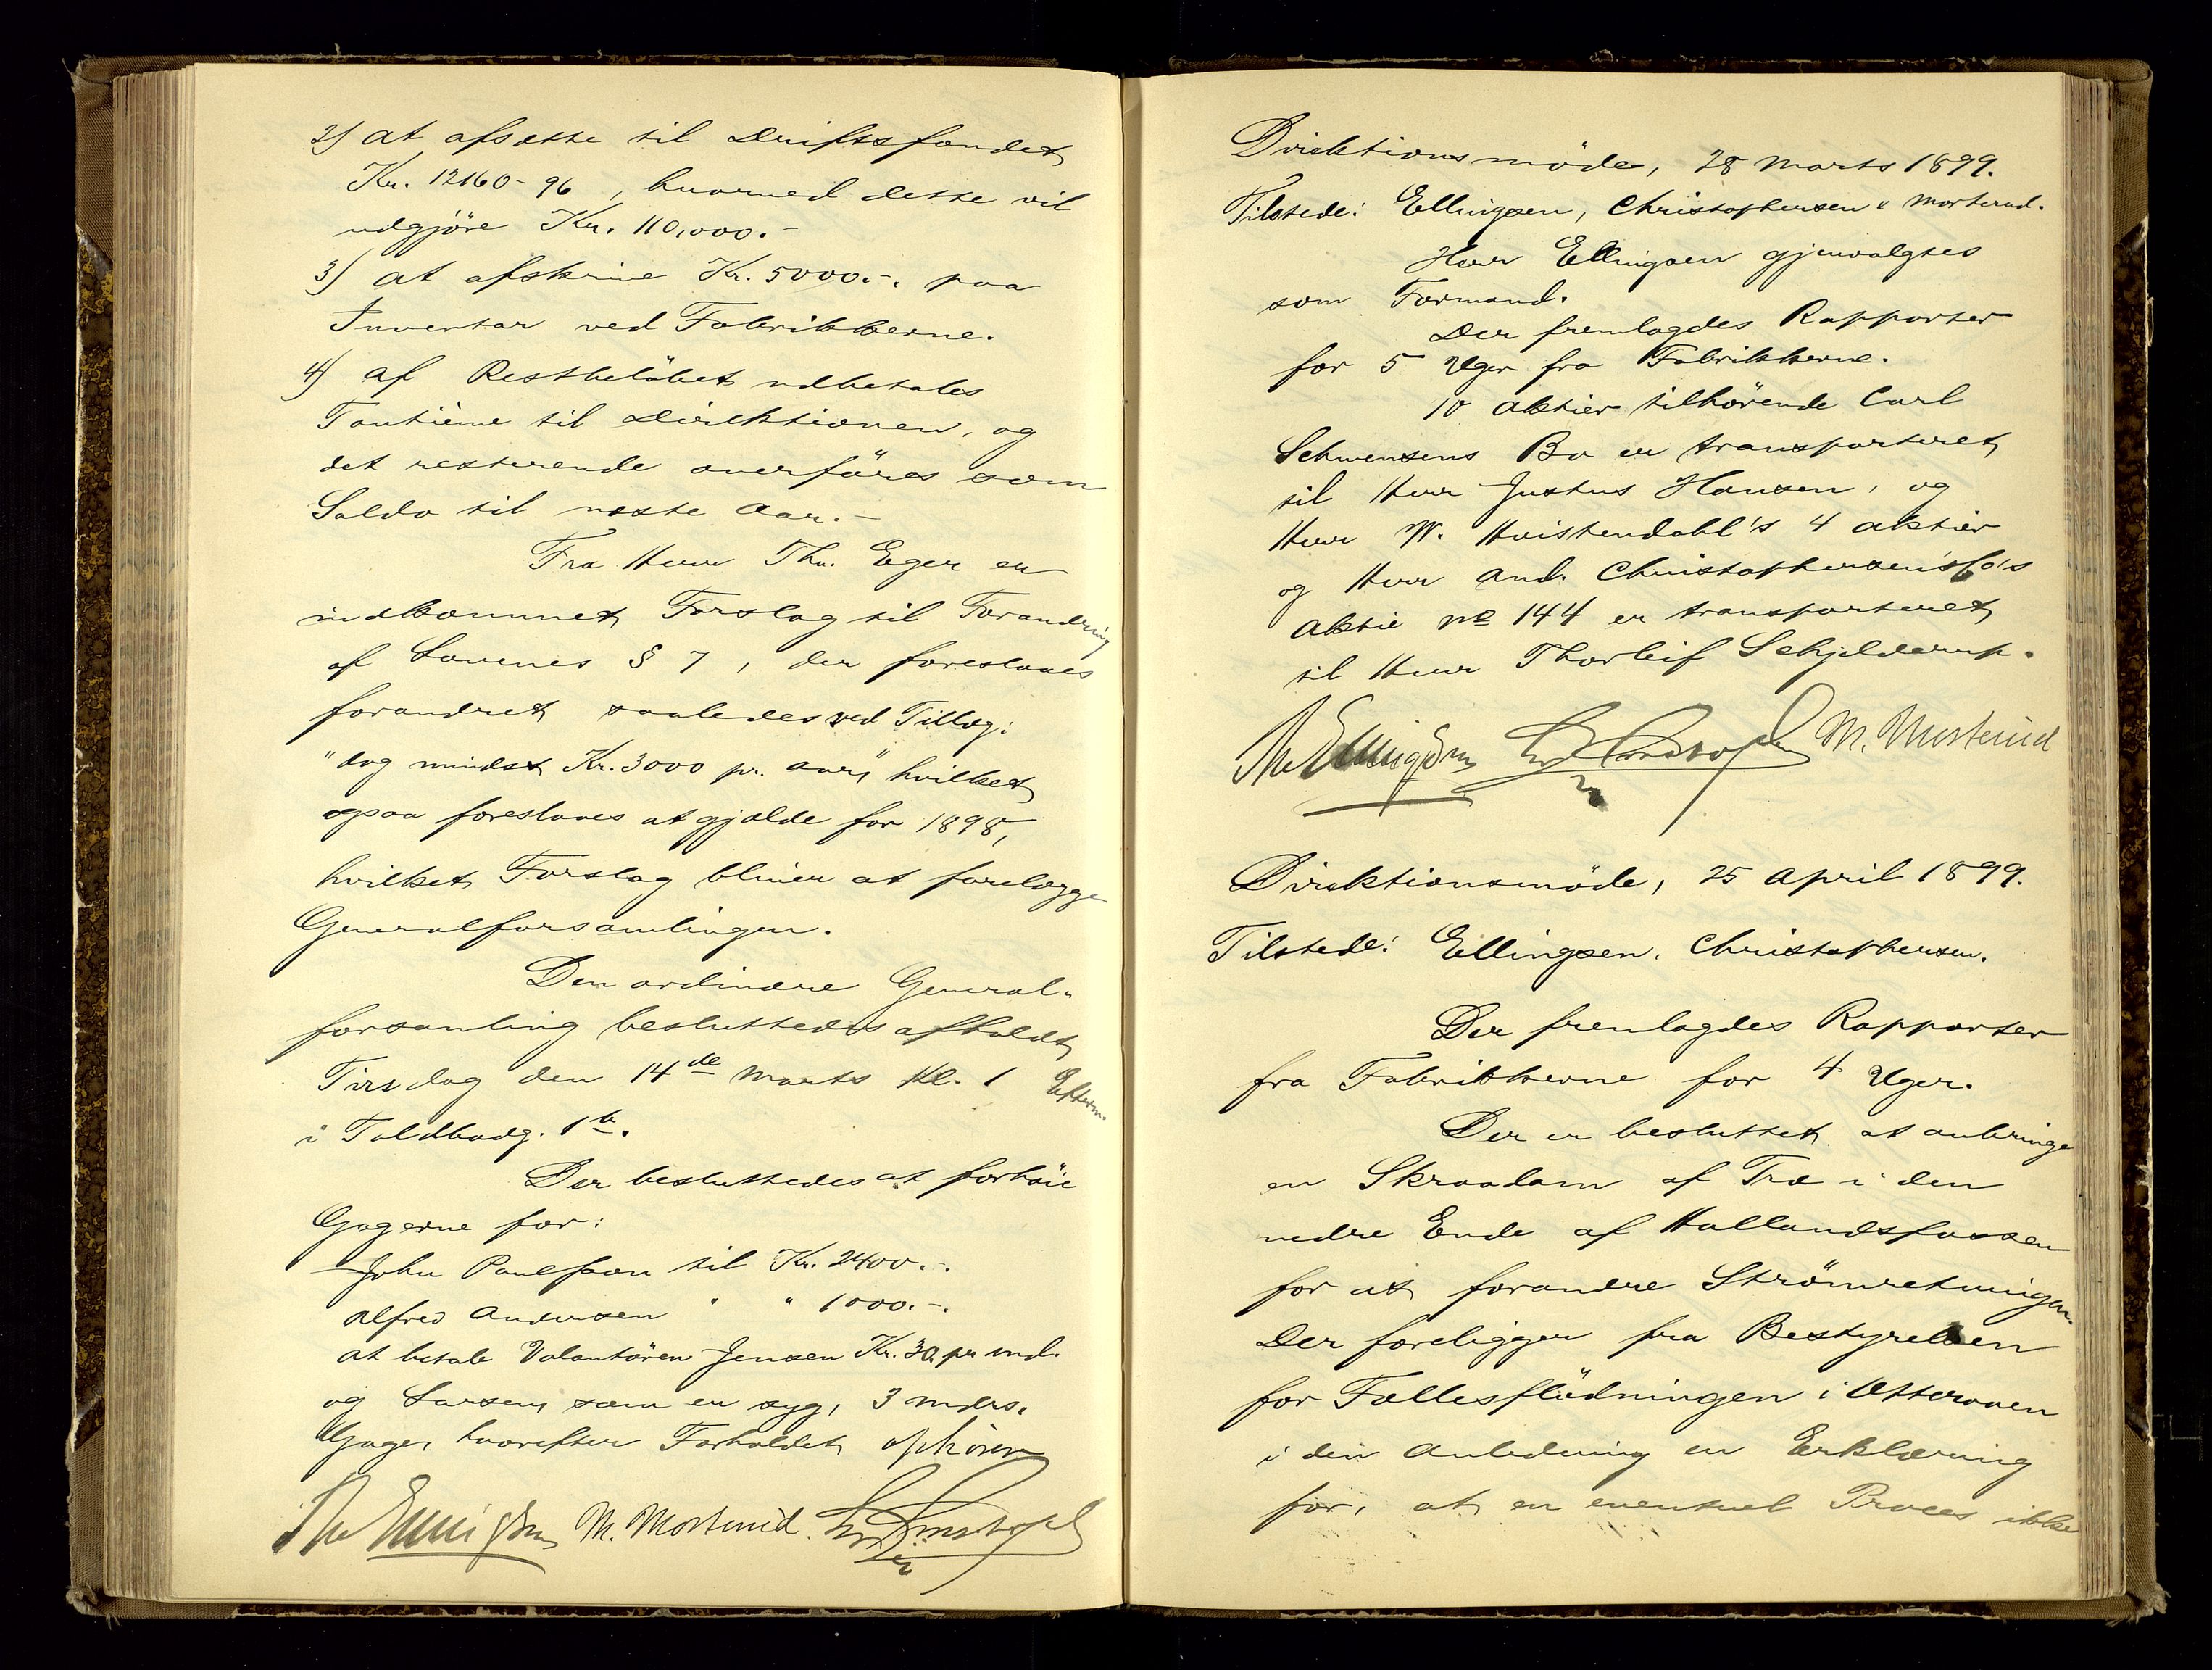 2) at afsætte til Driftsfondet
Kr. 12160-96, hvormed dette vil
udgjöre Kr. 110,000.-
3) at afskrive Kr. 5000.-. paa
Inventar ved Fabrikkerne.
4) af Restbelöbet udbetales
Tantième til Direktionen, og
det resterende overföres som
Saldo til næste Aar.-
Fra Herr Thv. Eger er
indkommet Forslag til Forandring
af Lovenes § 7, der foreslaaes
forandret saaledes ved Tillæg:
"dog mindst Kr. 3000 pr. aar", hvilket
ogsaa foreslaaes at gjælde for 1898,
hvilket Forslag bliver at forelægge
Generalforsamlingen.
Den ordinære General-
forsamling besluttedes afholdt
Tirsdag den 14de Marts Kl. 1 Efterm.
i Toldbodg. 1b.
Der besluttedes at forhöie
Gagerne for:
John Paulsson til Kr. 2400.-.
Alfred Andersen " " 1000.-.
at betale Volontören Jensen Kr. 30. pr md.
og Larsen, som er syg, 3 mdrs.
Gage, hvorefter Forholdet ophörer
Th Ellingsen M. Mosterud
Direktionsmöde, 28 Marts 1899.
Tilstede: Ellingsen, Christophersen & Mosterud.
Herr Ellingsen gjenvalgtes
som Formand.
Der fremlagdes Rapporter
for 5 Uger fra Fabrikkerne.
10 Aktier tilhörende Carl
Schwensens Bo er transporteret
til Herr Justus Hansen, og
Herr W. Hvistendahl's 4 aktier
og Herr And. Christophersen's Co's
Aktie No 144 er transporteret
til Herr Thorleif Schjelderup.
Th Ellingsen M. Mosterud
Direktionsmöde, 25 April 1899.
Tilstede: Ellingsen, Christophersen.
Der fremlagdes Rapporter
fra Fabrikkerne for 4 Uger.
Der er besluttet at anbringe
en Skraadam af Træ i den
nedre Ende af Hallandsfossen
for at forandre Strömretningen.
Der foreligger fra Bestyrelsen
for Fællesflödningen i Otteraaen
i den Anledning en Erklæring
for, at en eventuel Proces ikke